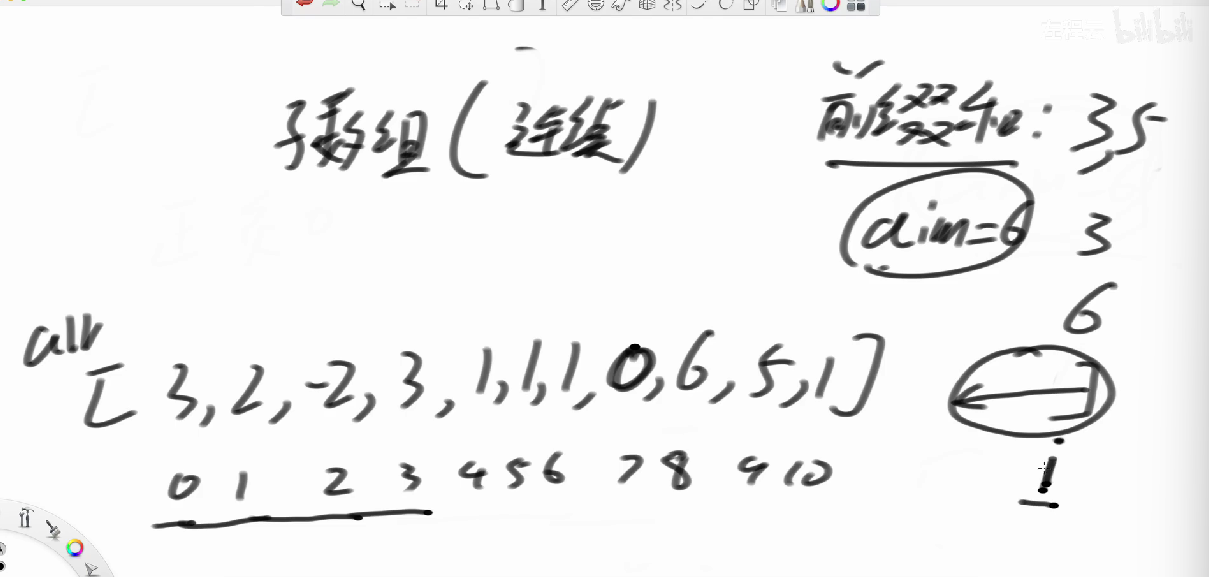 子数组(连续)
前缀和: 3,5
aim=6 3
6
arr
[3,2,-2,3,1,1,1,0,6,5,1]
0 1 2 3 4 5 6 7 8 9 10
i
bilibili